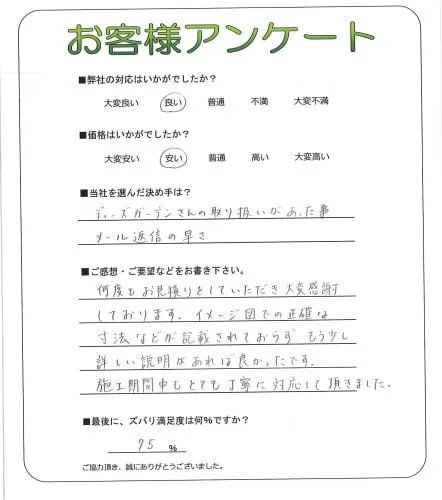 お客様アンケート
■弊社の対応はいかがでしたか？
大変良い　良い　普通　不満　大変不満
■価格はいかがでしたか？
大変安い　安い　普通　高い　大変高い
■当社を選んだ決め手は？
ディーズガーデンさんの取り扱いがあった事
メール返信の早さ
■ご感想・ご要望などをお書き下さい。
何度もお見積りをしていただき大変感謝
しております。イメージ図での正確な
寸法などが記載されておらず もう少し
詳しい説明があれば良かったです。
施工期間中もとても丁寧に対応して頂きました。
■最後に、ズバリ満足度は何％ですか？
75 ％
ご協力頂き、誠にありがとうございました。